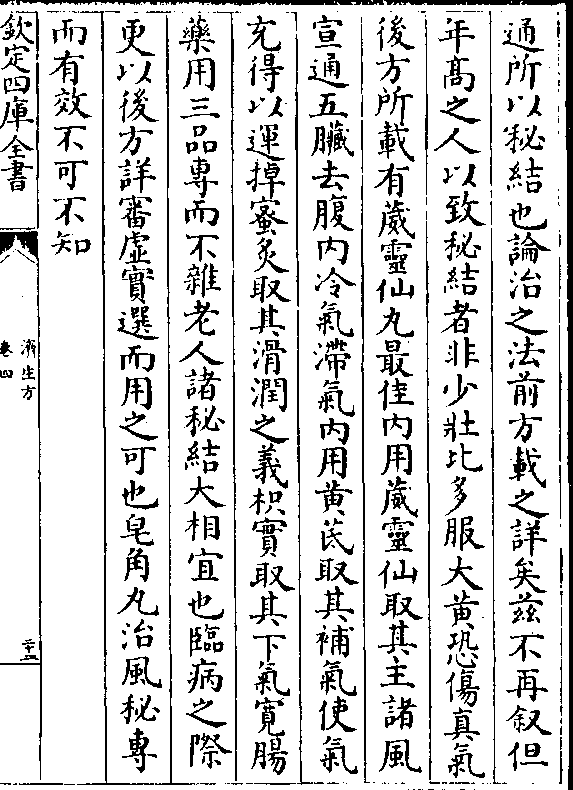 通所以秘結也論治之法前方載之詳矣兹不再叙但
年髙之人以致秘結者非少壯比多服大黄恐傷真氣
後方所載有葳靈仙丸最佳内用葳靈仙取其主諸風
宣通五臓去腹内冷氣滯氣内用黄芪取其補氣使氣
充得以運掉蜜炙取其滑潤之義枳實取其下氣寛腸
藥用三品専而不雜老人諸秘結大相宜也臨病之際
更以後方詳審虚實選而用之可也皂角丸治風秘専
而有效不可不知
欽定四庫全書
濟生方
卷四
二十五